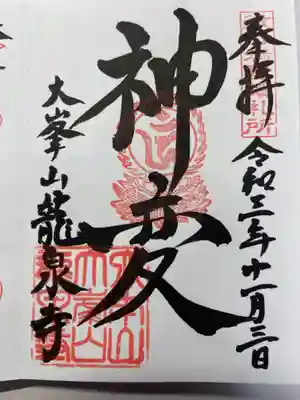 奉拝
令和三年十一月三日
神変
大峯山龍泉寺